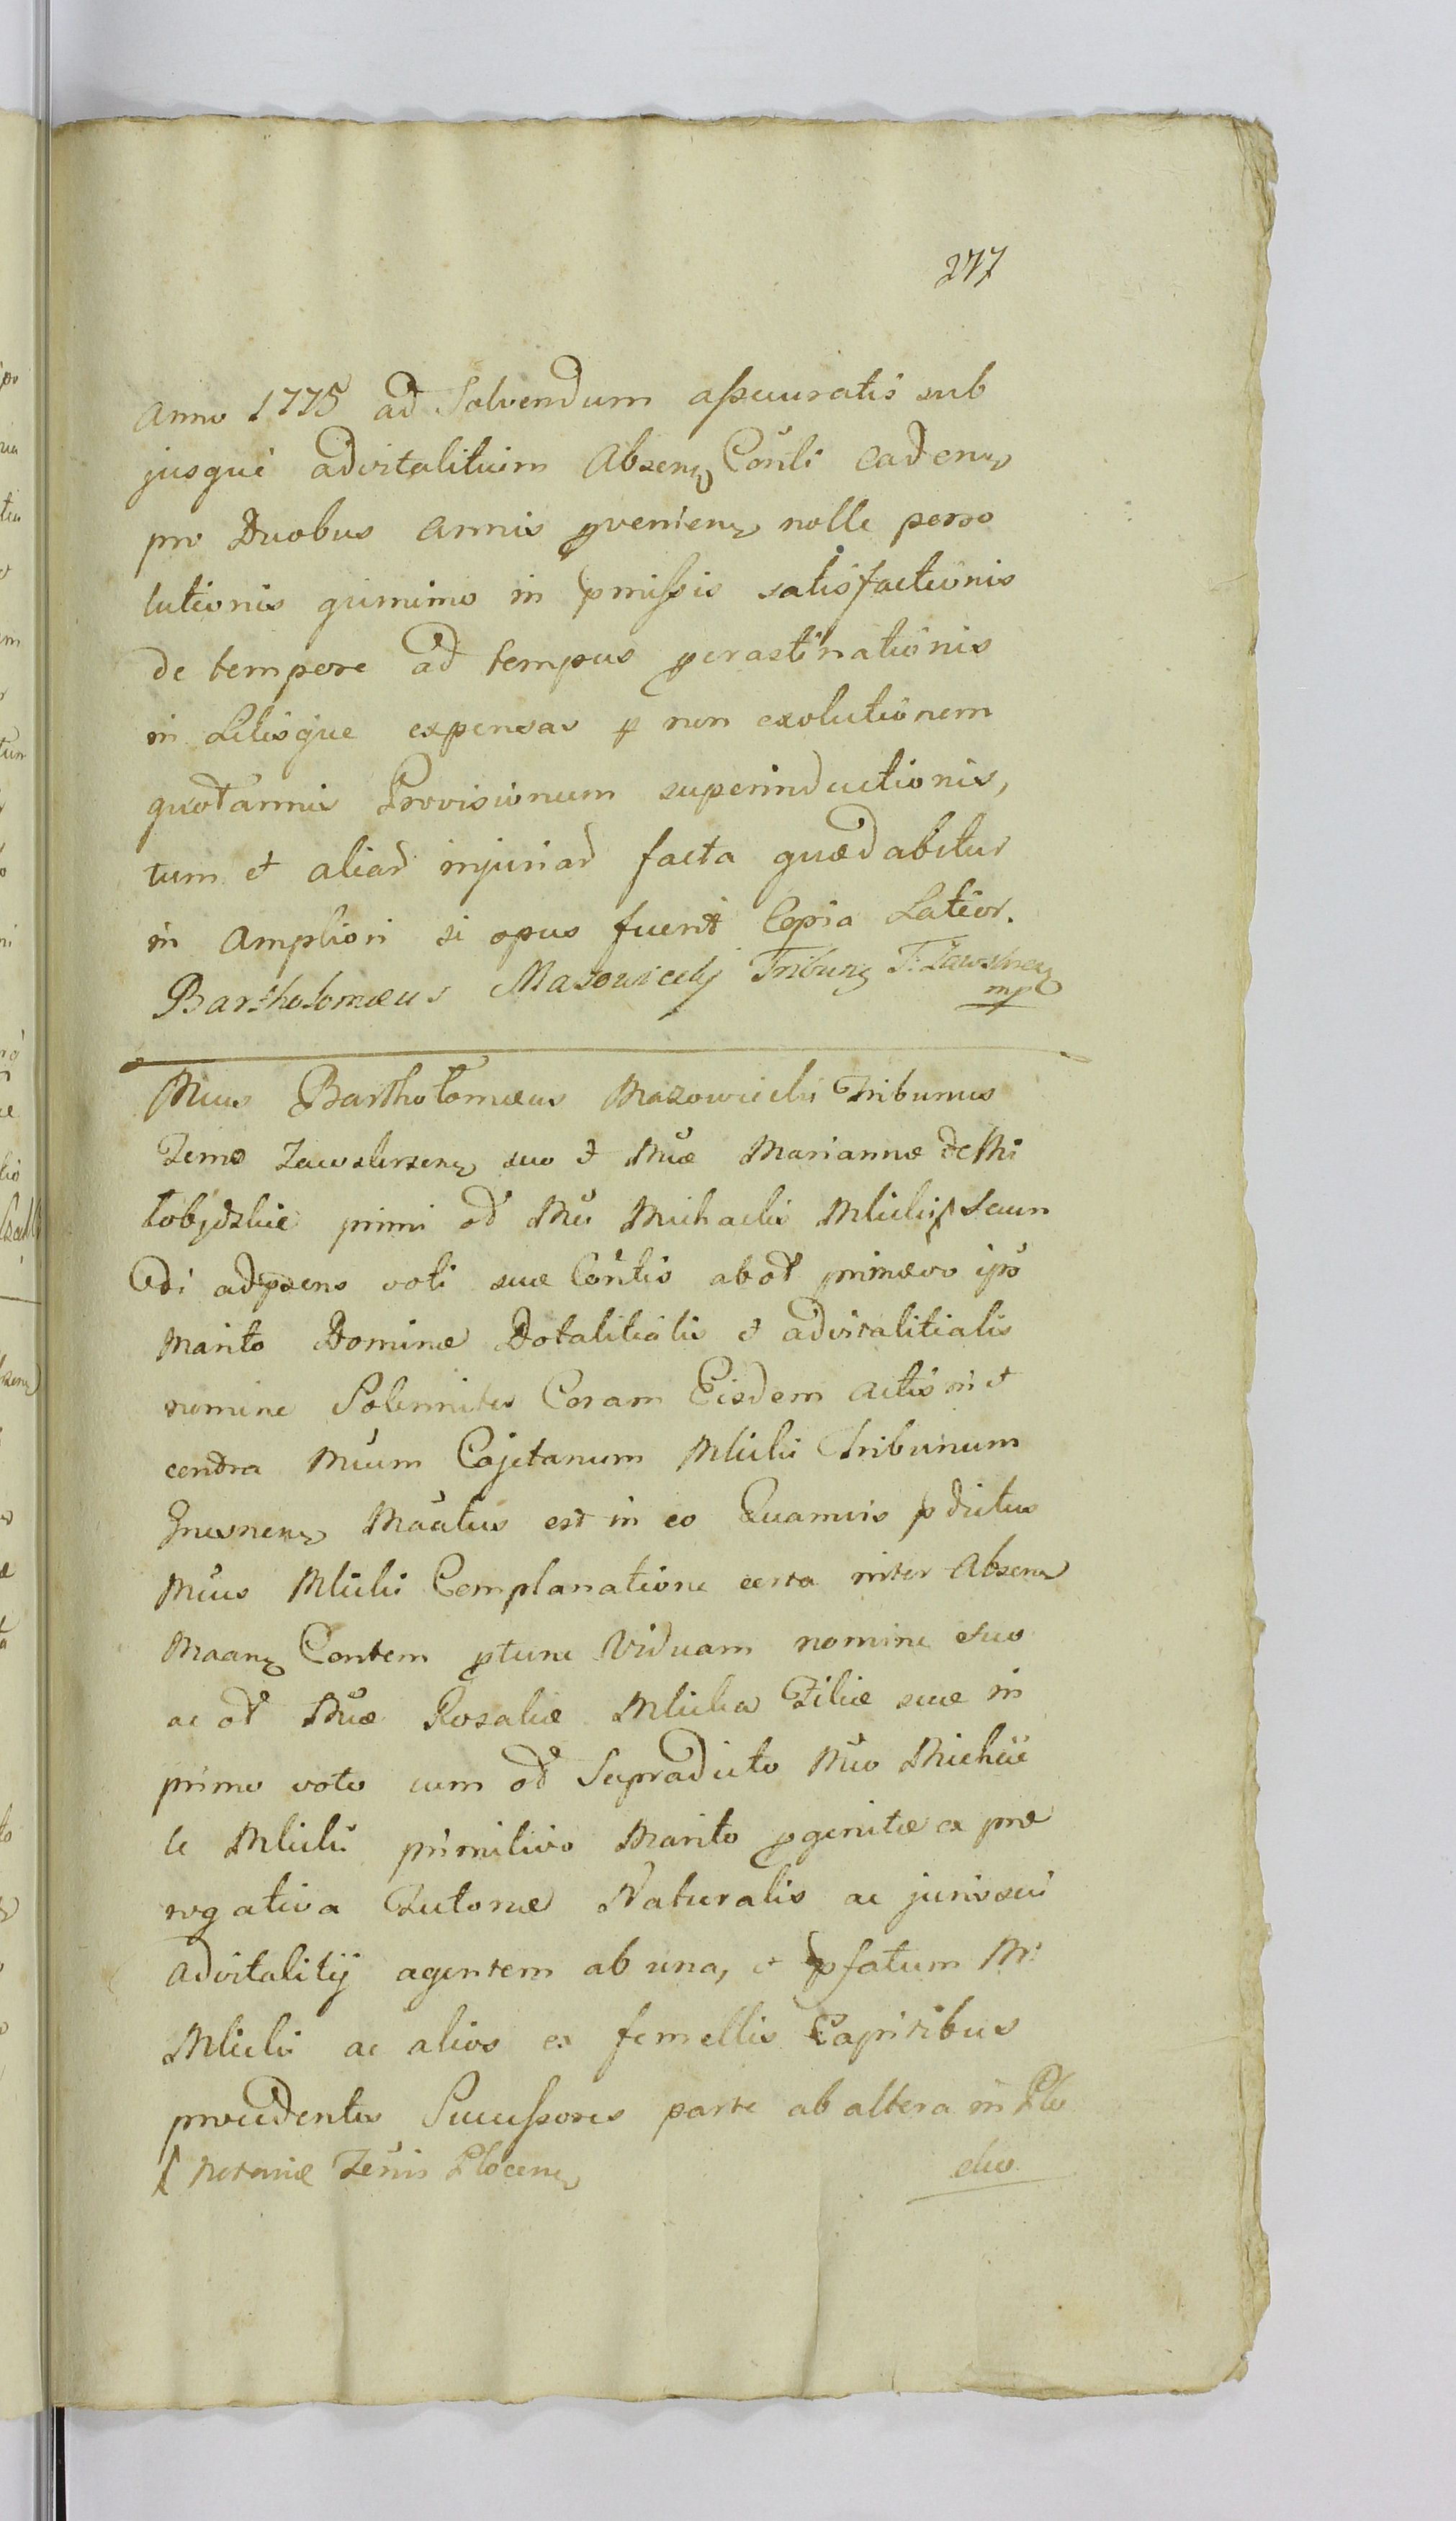 277
Anno 1775 ad Salvendum assecuratis sub
jusque advitalitium Absenę Conti cadenę
pro Duobus annis pvenienę nolle perso
lutionis quinimo in pmissis satisfactionis
de tempore ad tempus pcrastinationis
in Litisque expensas p non exolutionem
quotannis Provisionum superinductionis,
tum et aliar injuriar facta quæ dabitur
in Ampliori si opus fuerit Copia Latior.
Bartholomæus Mazowiecky Tribunę T: Zawskrzenę
mp
Mcus Bartholomæus Mazowiecki Tribunus
Zawskrzenę suo et Mcæ Mariannæ de Mi
łobędzkie primi od Mci Michaelis Mlicki Secun
di adpræsens voti suæ Contis ab od primævo ipso
Marito Dominæ Dotalitialis et advitalitialis
nomine Solenniter Coram Eisdem Actis in et
contra Mcum Cajetanum Mlicki Tribunum
Gnesnenę est in eo Quamvis pdictus
Mcus Mlicki Complanatione certa inter Absenę
Maanę Contem ptunc Viduam nomine suo
ac od Mcæ Rosaliæ Mlicka Filiæ suæ in
primo voto cum od Supradicto Mco Michae
le Mlicki primitivo Marito pgenitæ ex præ
rogativa Tutoriæ Naturalis ac juris sui
Advitalitij agentem ab una, et pfatum M:
Mlicki ac alios ex femellis Capitibus
procedentes Successores parte ab altera in Plo
Notariæ Plocenę
cko